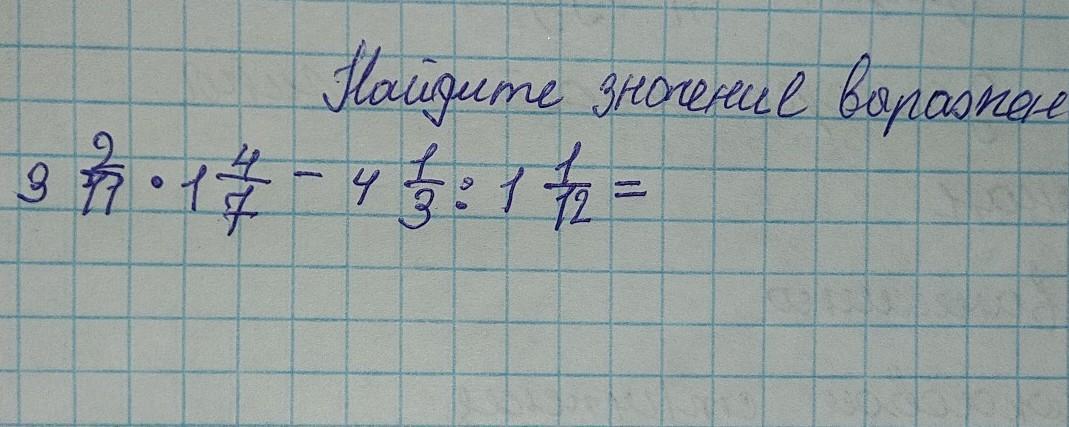 Найдите значение выражен
3 2/11 · 1 4/7 - 4 1/3 : 1 1/12 =